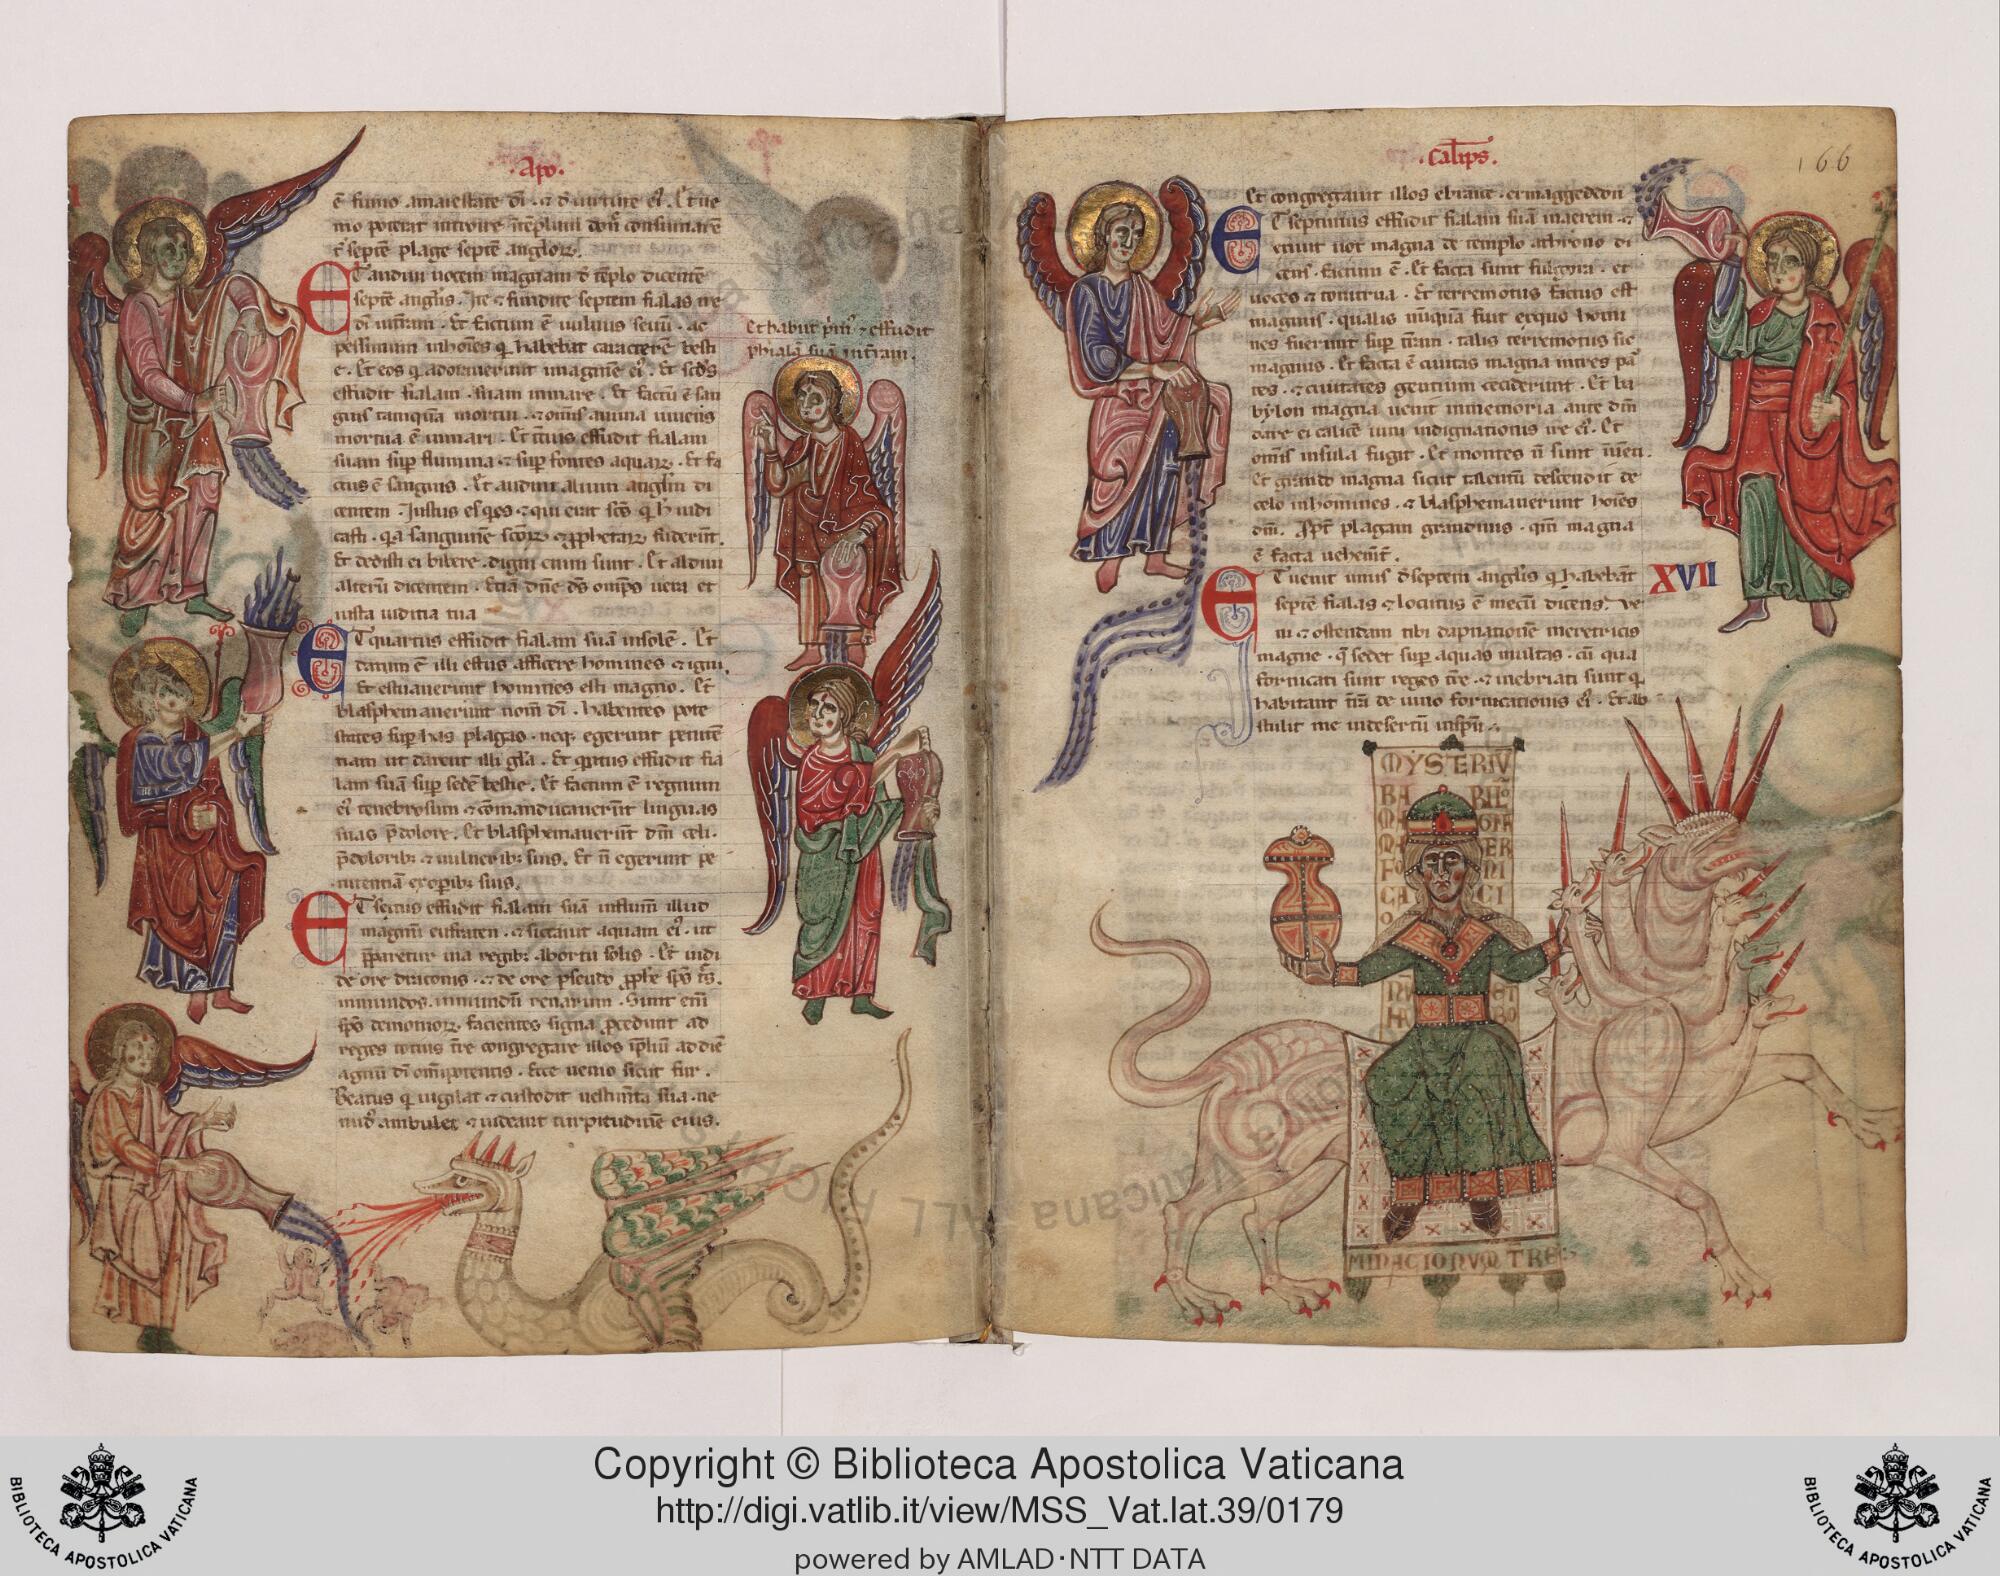 ·Apo·
ē fumo amaiestate dī · & d̄ uirtute ei᷒. Et ne
mo poterat introire ī tēplum donc̄ consumarēt
septē plage septē angloꝝ.
Et audiui uocem magnam d̄ tēplo dicentē
septē anglis. Ite & fundite septem fialas ire
dī ī terram. Et factum ē uulnus seuū · ac
pessimum ī hoīes q̇ habebāt caracterē besti
e. Et eos q̇ adorauerunt imaginē ei᷒. Et scd̄s
effudit fialam suam ī mare. Et factū ē san
guis tamquā mortui · & omīs anima uiuens
mortua ē ī mari. Et t̄cius effudit fialam
suam sup flumina & sup fontes aquaꝝ. Et fa
ctus ē sanguis. Et audiui alium anglm̄ di
centem. Iustus es q̇ es & qui erat sc̄s q̇ h̄ iudi
casti. q̇a sanguinē scōꝝ & ꝓphetaꝝ fuderūt.
Et dedisti ei bibere. digni enim sunt. Et audiui
alterū dicentem. Etiā dn̄e ds̄ omīps uera et
iusta iuditia tua
Et quartus effudit fialam suā ī solē. Et
datum ē illi estus afficere homines & igni.
Et estuauerunt homines estu magno. Et
blasphemauerunt nom̄ dī. habentes pote
states sup has plagas. neq; egerunt penitē
tiam ut darent illi glā. Et qīntus effudit fia
lam suā sup sedē bestie. Et factum ē regnum
ei᷒ tenebrosum & cōmanducauerūt linguas
suas p̄ dolore. Et blasphemauerūt dm̄ celi.
p̄ dolorib; & uulnerib; suis. Et n̄ egerunt pe
nitentiā ex opīb; suis.
Et sextus effudit fialam suā ī flum̄ illud
magnū eufraten. & siccauit aquam ei᷒. ut
p̄pararetur uia regib; ab ortu solis. Et uidi
de ore draconis. & de ore pseudo ꝓphe sps̄ t̄s.
inmundos. immundū ranarum. Sunt eni
sps̄ demonioꝝ. facientes signa ꝓcedunt ad
reges totius t̄re congregare illos ī pliū ad diē
agnū dī om̄ipotentis. Ecce uenio sicut fur.
Beatus q̇ uigilat & custodit uestimta sua. ne
nud᷒ ambulet & uideant turpitudinē eius.
Et habiit p̄m᷒ & effudit
phialā suā ī ntram.
·Calips·
166
Et congregauit illos ebraice · ermaggedon
Et septimus effudit fialam suā ī aerem · &
exiuit uox magna de templo a throno di
cens. factum ē. Et facta sunt fulgora. et
uoces & tonitrua. Et terremotus factus est
magnus. qualis nūquā fuit ex quo homi
nes fuerunt sup t̄ram. talis terremotus sic
magnus. Et facta ē ciuitas magna ī tres pa
tes. & ciuitates gentium ceciderunt. Et ba
bylon magna uenit ī memoria ante dm̄
dare ei calicē uini indignationis ire ei᷒. Et
omīs insula fugit. Et montes n̄ sunt ī uen̄.
Et grando magna sicut talentū descendit de
celo ī homines. & blasphemauerunt hoīes
dm̄. Ppt plagam grandinis. qm̄ magna
ē facta uehem̄t.
XVII
Et uenit unus d̄ septem anglis q̇ habebant
septē fialas & locutus ē mecū dicens. Ve
ni & ostendam tibi dapnationē meretricis
magne. q̄ sedet sup aquas multas. cū qua
fornicati sunt reges t̄re. & inebriati sunt q̇
habitant t̄rā de uino fornicationis ei᷒. Et ab
stulit me ī desertū ī spū.
MYSTERIV
BA BILO
MA GNA
MA ER
FO NI
CA CI
O
NV ET
HA BO
MINACIONVM T̄RE
Copyright © Biblioteca Apostolica Vaticana
http://digi.vatlib.it/view/MSS_Vat.lat.39/0179
powered by AMLAD·NTT DATA
BIBLIOTECA APOSTOLICA VATICANA
BIBLIOTECA APOSTOLICA VATICANA